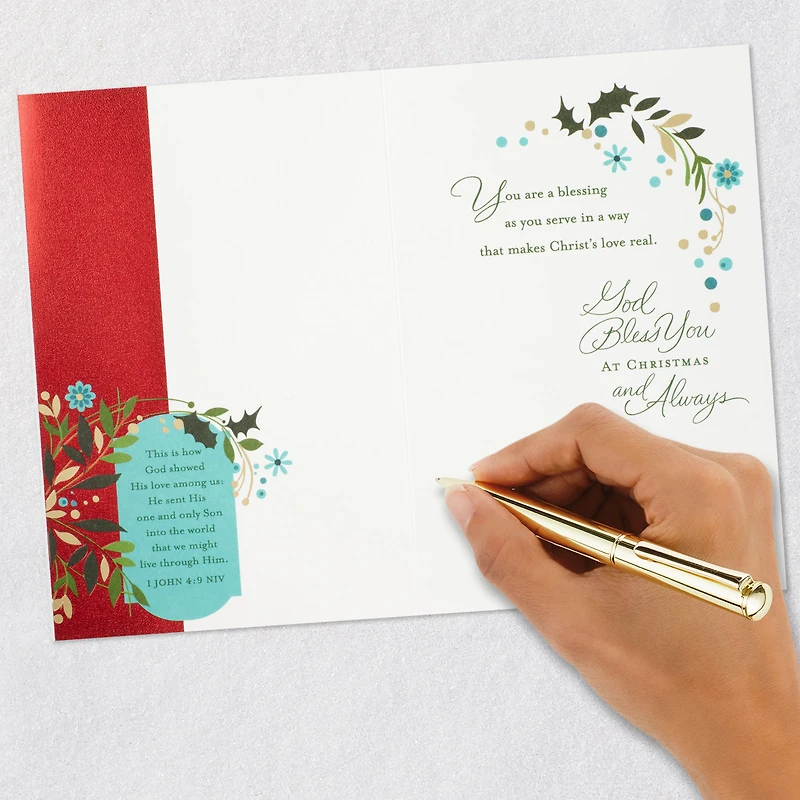 This is how
God showed
His love among us:
He sent His
one and only Son
into the world
that we might
live through Him.
1 JOHN 4:9 NIV
You are a blessing
as you serve in a way
that makes Christ's love real.
God
Bless You
AT CHRISTMAS
and Always